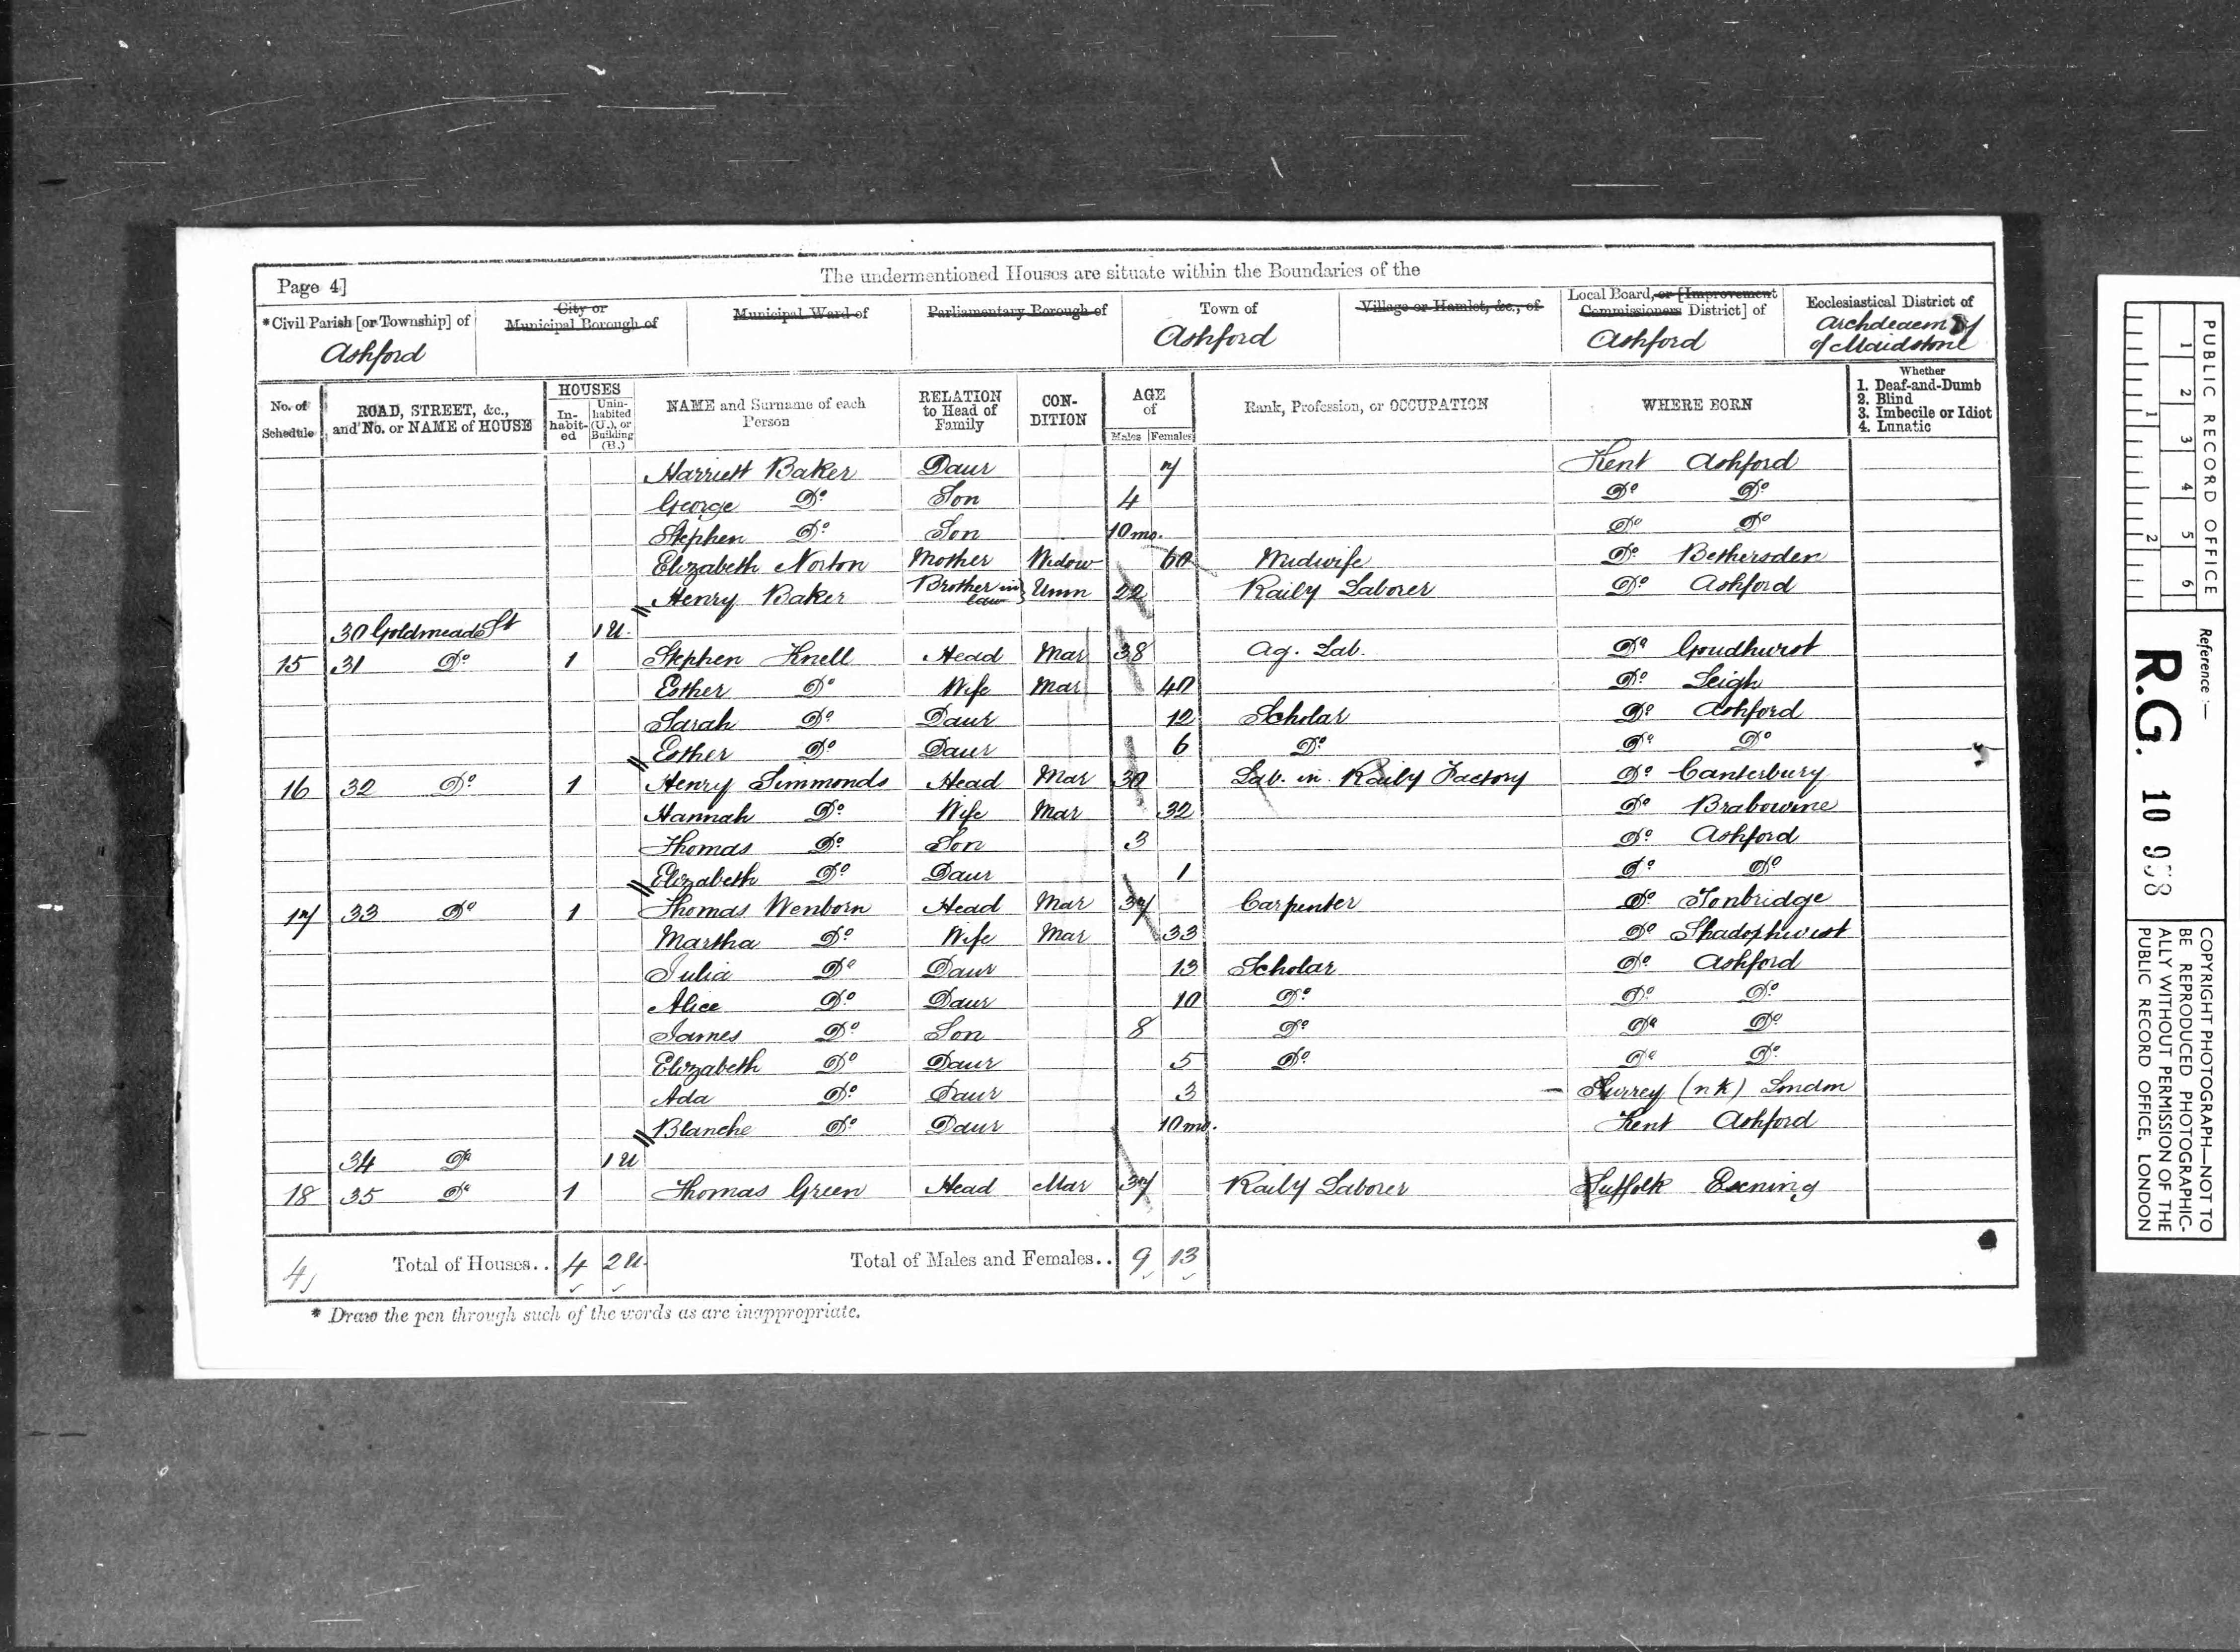 The undermentioned Houses are situate within the Boundaries of the
Page 4]
*Civil Parish [or Township] of
Ashford
City or Municipal Borough of
Municipal Ward of
Parliamentary Borough of
Town of
Ashford
Village or Hamlet, &c., of
Local Board, or [Improvement Commissioners District] of
Ashford
Ecclesiastical District of
of Maidstone
No. of Schedule
ROAD, STREET, &c., and No. or NAME of HOUSE
HOUSES
In-habit-ed
Unin-habited (U.), or Building (B.)
NAME and Surname of each Person
RELATION to Head of Family
CON-DITION
AGE of
Males Females
Rank, Profession, or OCCUPATION
WHERE BORN
Whether
1. Deaf-and-Dumb
2. Blind
3. Imbecile or Idiot
4. Lunatic
Harriett Baker Daur 7 Kent Ashford
George Do Son 4 Do Do
Stephen Do Son 10 mo. Do Do
Elizabeth Norton Mother Widow 60 Midwife Do Bethersden
Henry Baker Brother in law Unm 22 Raily Laborer Do Ashford
30 Goldmeads St 1 U.
15 31 Do 1 Stephen Knell Head Mar 38 Ag. Lab. Do Goudhurst
Esther Do Wife Mar 40 Do Leigh
Sarah Do Daur 12 Scholar Do Ashford
Esther Do Daur 6 Do Do Do
16 32 Do 1 Henry Simmonds Head Mar 30 Lab. in Raily Factory Do Canterbury
Hannah Do Wife Mar 32 Do Brabowine
Thomas Do Son 3 Do Ashford
Elizabeth Do Daur 1 Do Do
17 33 Do 1 Thomas Wenborn Head Mar 37 Carpenter Do Tonbridge
Martha Do Wife Mar 33 Do Shadophurst
Julia Do Daur 13 Scholar Do Ashford
Alice Do Daur 10 Do Do Do
James Do Son 8 Do Do Do
Elizabeth Do Daur 5 Do Do Do
Ada Do Daur 3 Surrey (n k) London
Blanche Do Daur 10 mo. Kent Ashford
34 Do 1 U
18 35 Do 1 Thomas Green Head Mar 37 Raily Laborer Suffolk Exning
4 Total of Houses.. 4 2 U. Total of Males and Females.. 9 13
* Draw the pen through such of the words as are inappropriate.
PUBLIC RECORD OFFICE
1 2 3 4 5 6
1 2
Reference:—
R.G. 10 958
COPYRIGHT PHOTOGRAPH—NOT TO
BE REPRODUCED PHOTOGRAPHIC-
ALLY WITHOUT PERMISSION OF THE
PUBLIC RECORD OFFICE, LONDON